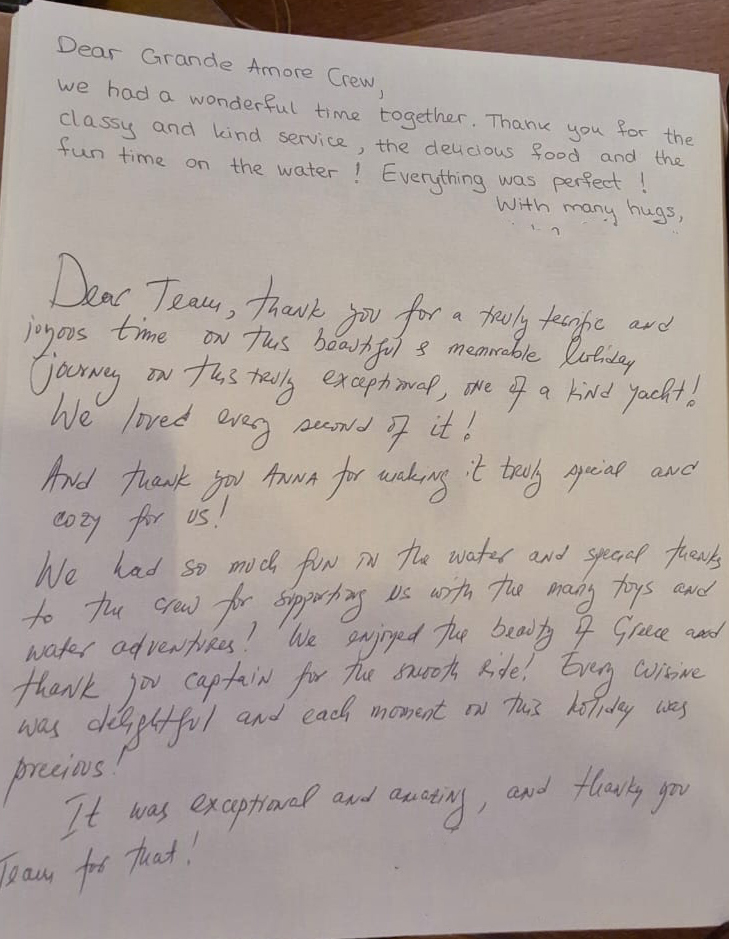 Dear Grande Amore Crew,
we had a wonderful time together. Thank you for the
classy and kind service, the delicious food and the
fun time on the water! Everything was perfect!
With many hugs,
Dear Team, thank you for a truly terrific and
joyous time on this beautiful & memorable holiday
journey on this truly exceptional, one of a kind yacht!
We loved every second of it!
And thank you ANNA for making it truly special and
cozy for us!
We had so much fun in the water and special thanks
to the crew for supporting us with the many toys and
water adventures! We enjoyed the beauty of Greece and
thank you captain for the smooth ride! Every cuisine
was delightful and each moment on this holiday was
precious!
It was exceptional and amazing, and thanky you
Team for that!